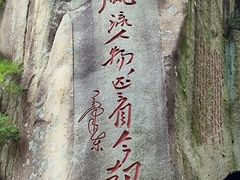 风流人物还看今朝
毛泽东